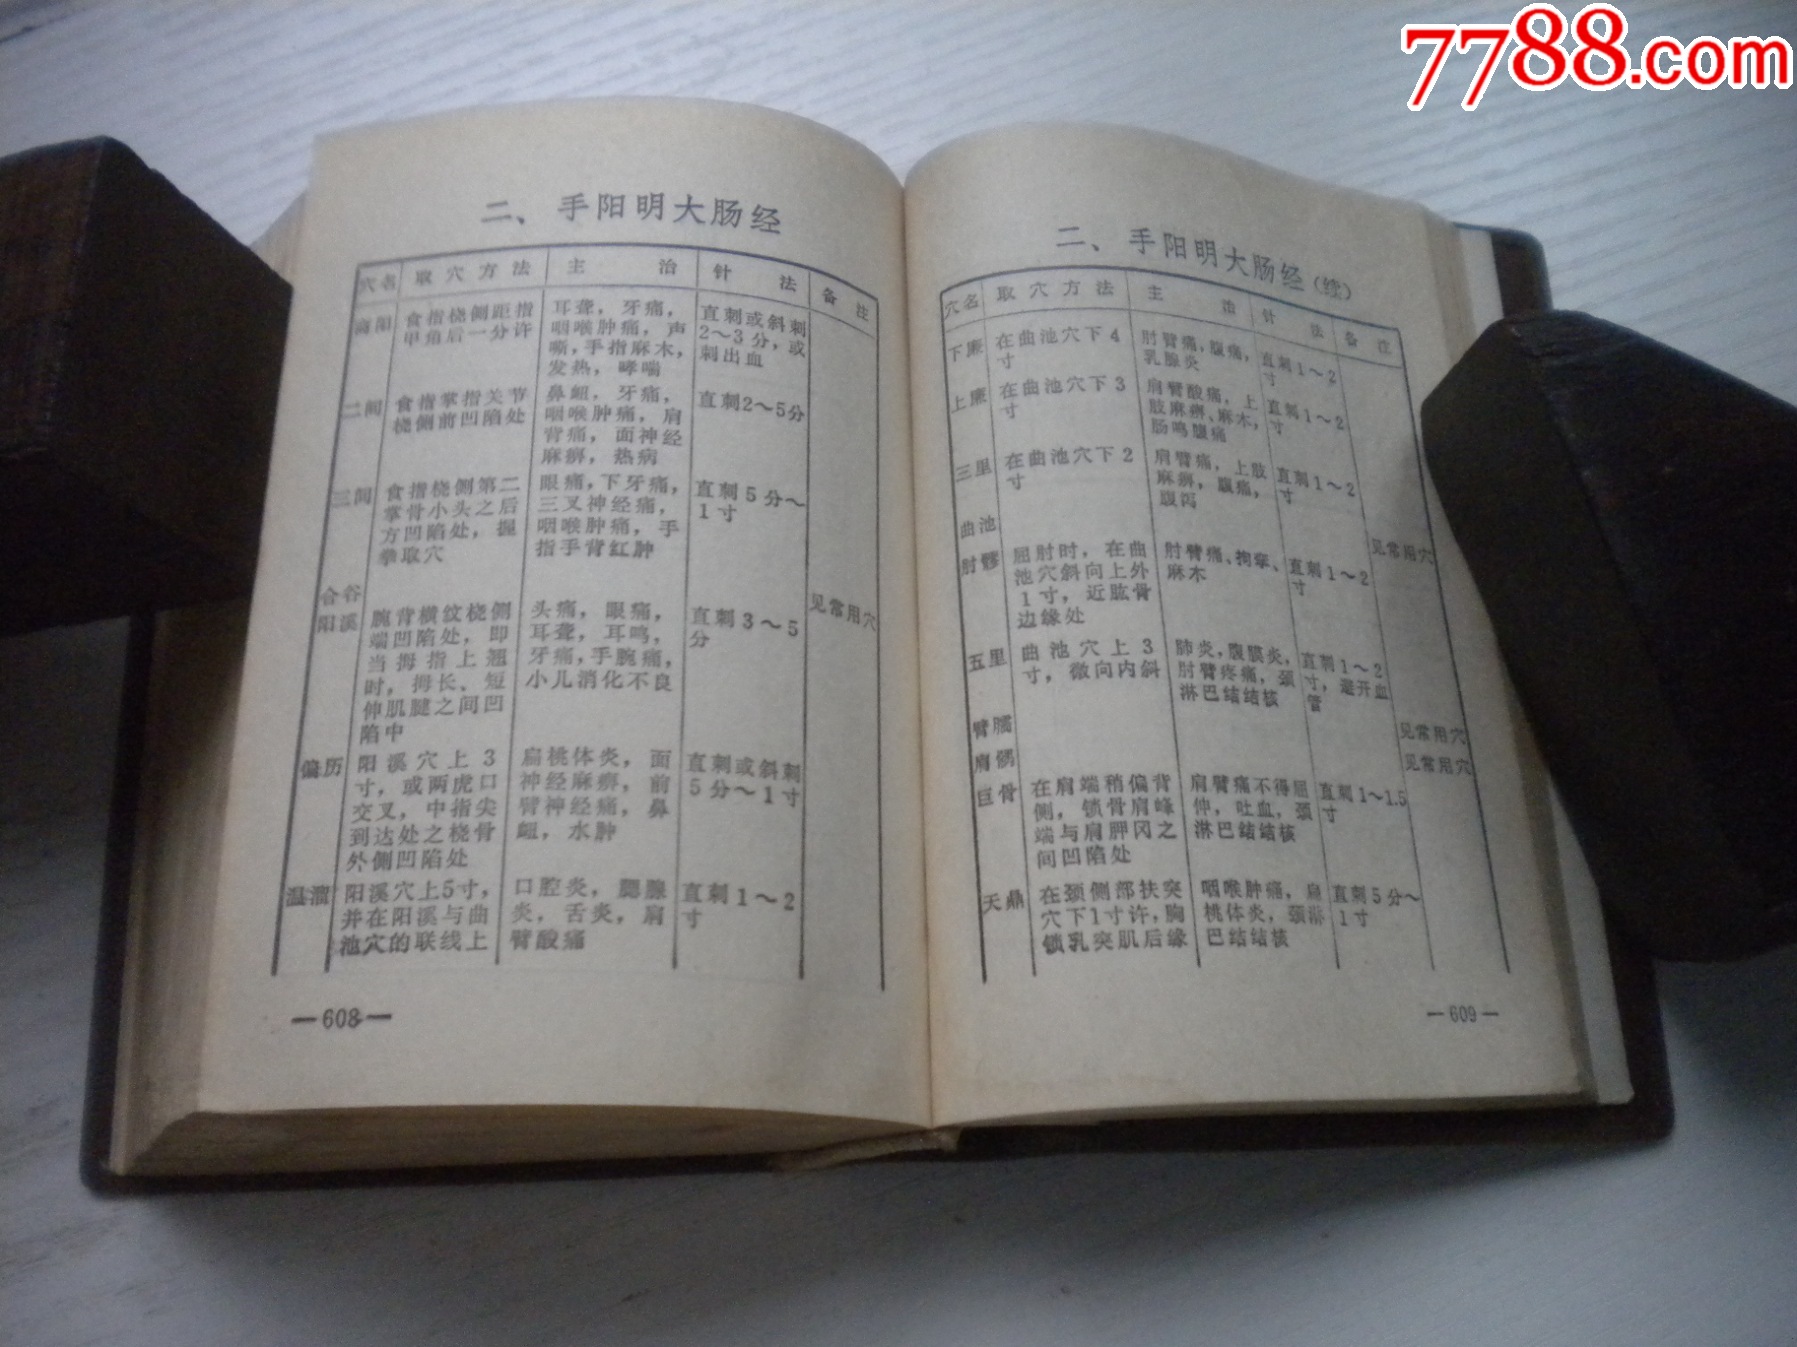 7788.com
二、手阳明大肠经
穴名 取穴方法 主治 针法 备注
商阳 食指桡侧距指 耳聋，牙痛， 直刺或斜刺
甲角后一分许 咽喉肿痛，声 2～3分，或
嘶，手指麻木， 刺出血
发热，哮喘
二间 食指掌指关节 鼻衄，牙痛， 直刺2～5分
桡侧前凹陷处 咽喉肿痛，肩
背痛，面神经
麻痹，热病
三间 食指桡侧第二 眼痛，下牙痛， 直刺5分～
掌骨小头之后 三叉神经痛， 1寸
方凹陷处，握 咽喉肿痛，手
拳取穴 指手背红肿
合谷 见常用穴
阳溪 腕背横纹桡侧 头痛，眼痛， 直刺3～5
端凹陷处，即 耳聋，耳鸣， 分
当拇指上翘 牙痛，手腕痛，
时，拇长、短 小儿消化不良
伸肌腱之间凹
陷中
偏历 阳溪穴上3 扁桃体炎，面 直刺或斜刺
寸，或两虎口 神经麻痹，前 5分～1寸
交叉，中指尖 臂神经痛，鼻
到达处之桡骨 衄，水肿
外侧凹陷处
温溜 阳溪穴上5寸， 口腔炎，腮腺 直刺1～2
并在阳溪与曲 炎，舌炎，肩 寸
池穴的联线上 臂酸痛
—608—
二、手阳明大肠经（续）
穴名 取穴方法 主治 针法 备注
下廉 在曲池穴下4 肘臂痛，腹痛， 直刺1～2
寸 乳腺炎 寸
上廉 在曲池穴下3 肩臂酸痛，上 直刺1～2
寸 肢麻痹、麻木， 寸
肠鸣腹痛
三里 在曲池穴下2 肩臂痛，上肢 直刺1～2
寸 麻痹，腹痛， 寸
腹泻
曲池 见常用穴
肘髎 屈肘时，在曲 肘臂痛、拘挛、 直刺1～2
池穴斜向上外 麻木 寸
1寸，近肱骨
边缘处
五里 曲池穴上3 肺炎，腹膜炎， 直刺1～2
寸，微向内斜 肘臂疼痛，颈 寸，避开血
淋巴结结核 管
臂臑 见常用穴
肩髃 见常用穴
巨骨 在肩端稍偏背 肩臂痛不得屈 直刺1～1.5
侧，锁骨肩峰 伸，吐血，颈 寸
端与肩胛冈之 淋巴结结核
间凹陷处
天鼎 在颈侧部扶突 咽喉肿痛，扁 直刺5分～
穴下1寸许，胸 桃体炎，颈淋 1寸
锁乳突肌后缘 巴结结核
—609—